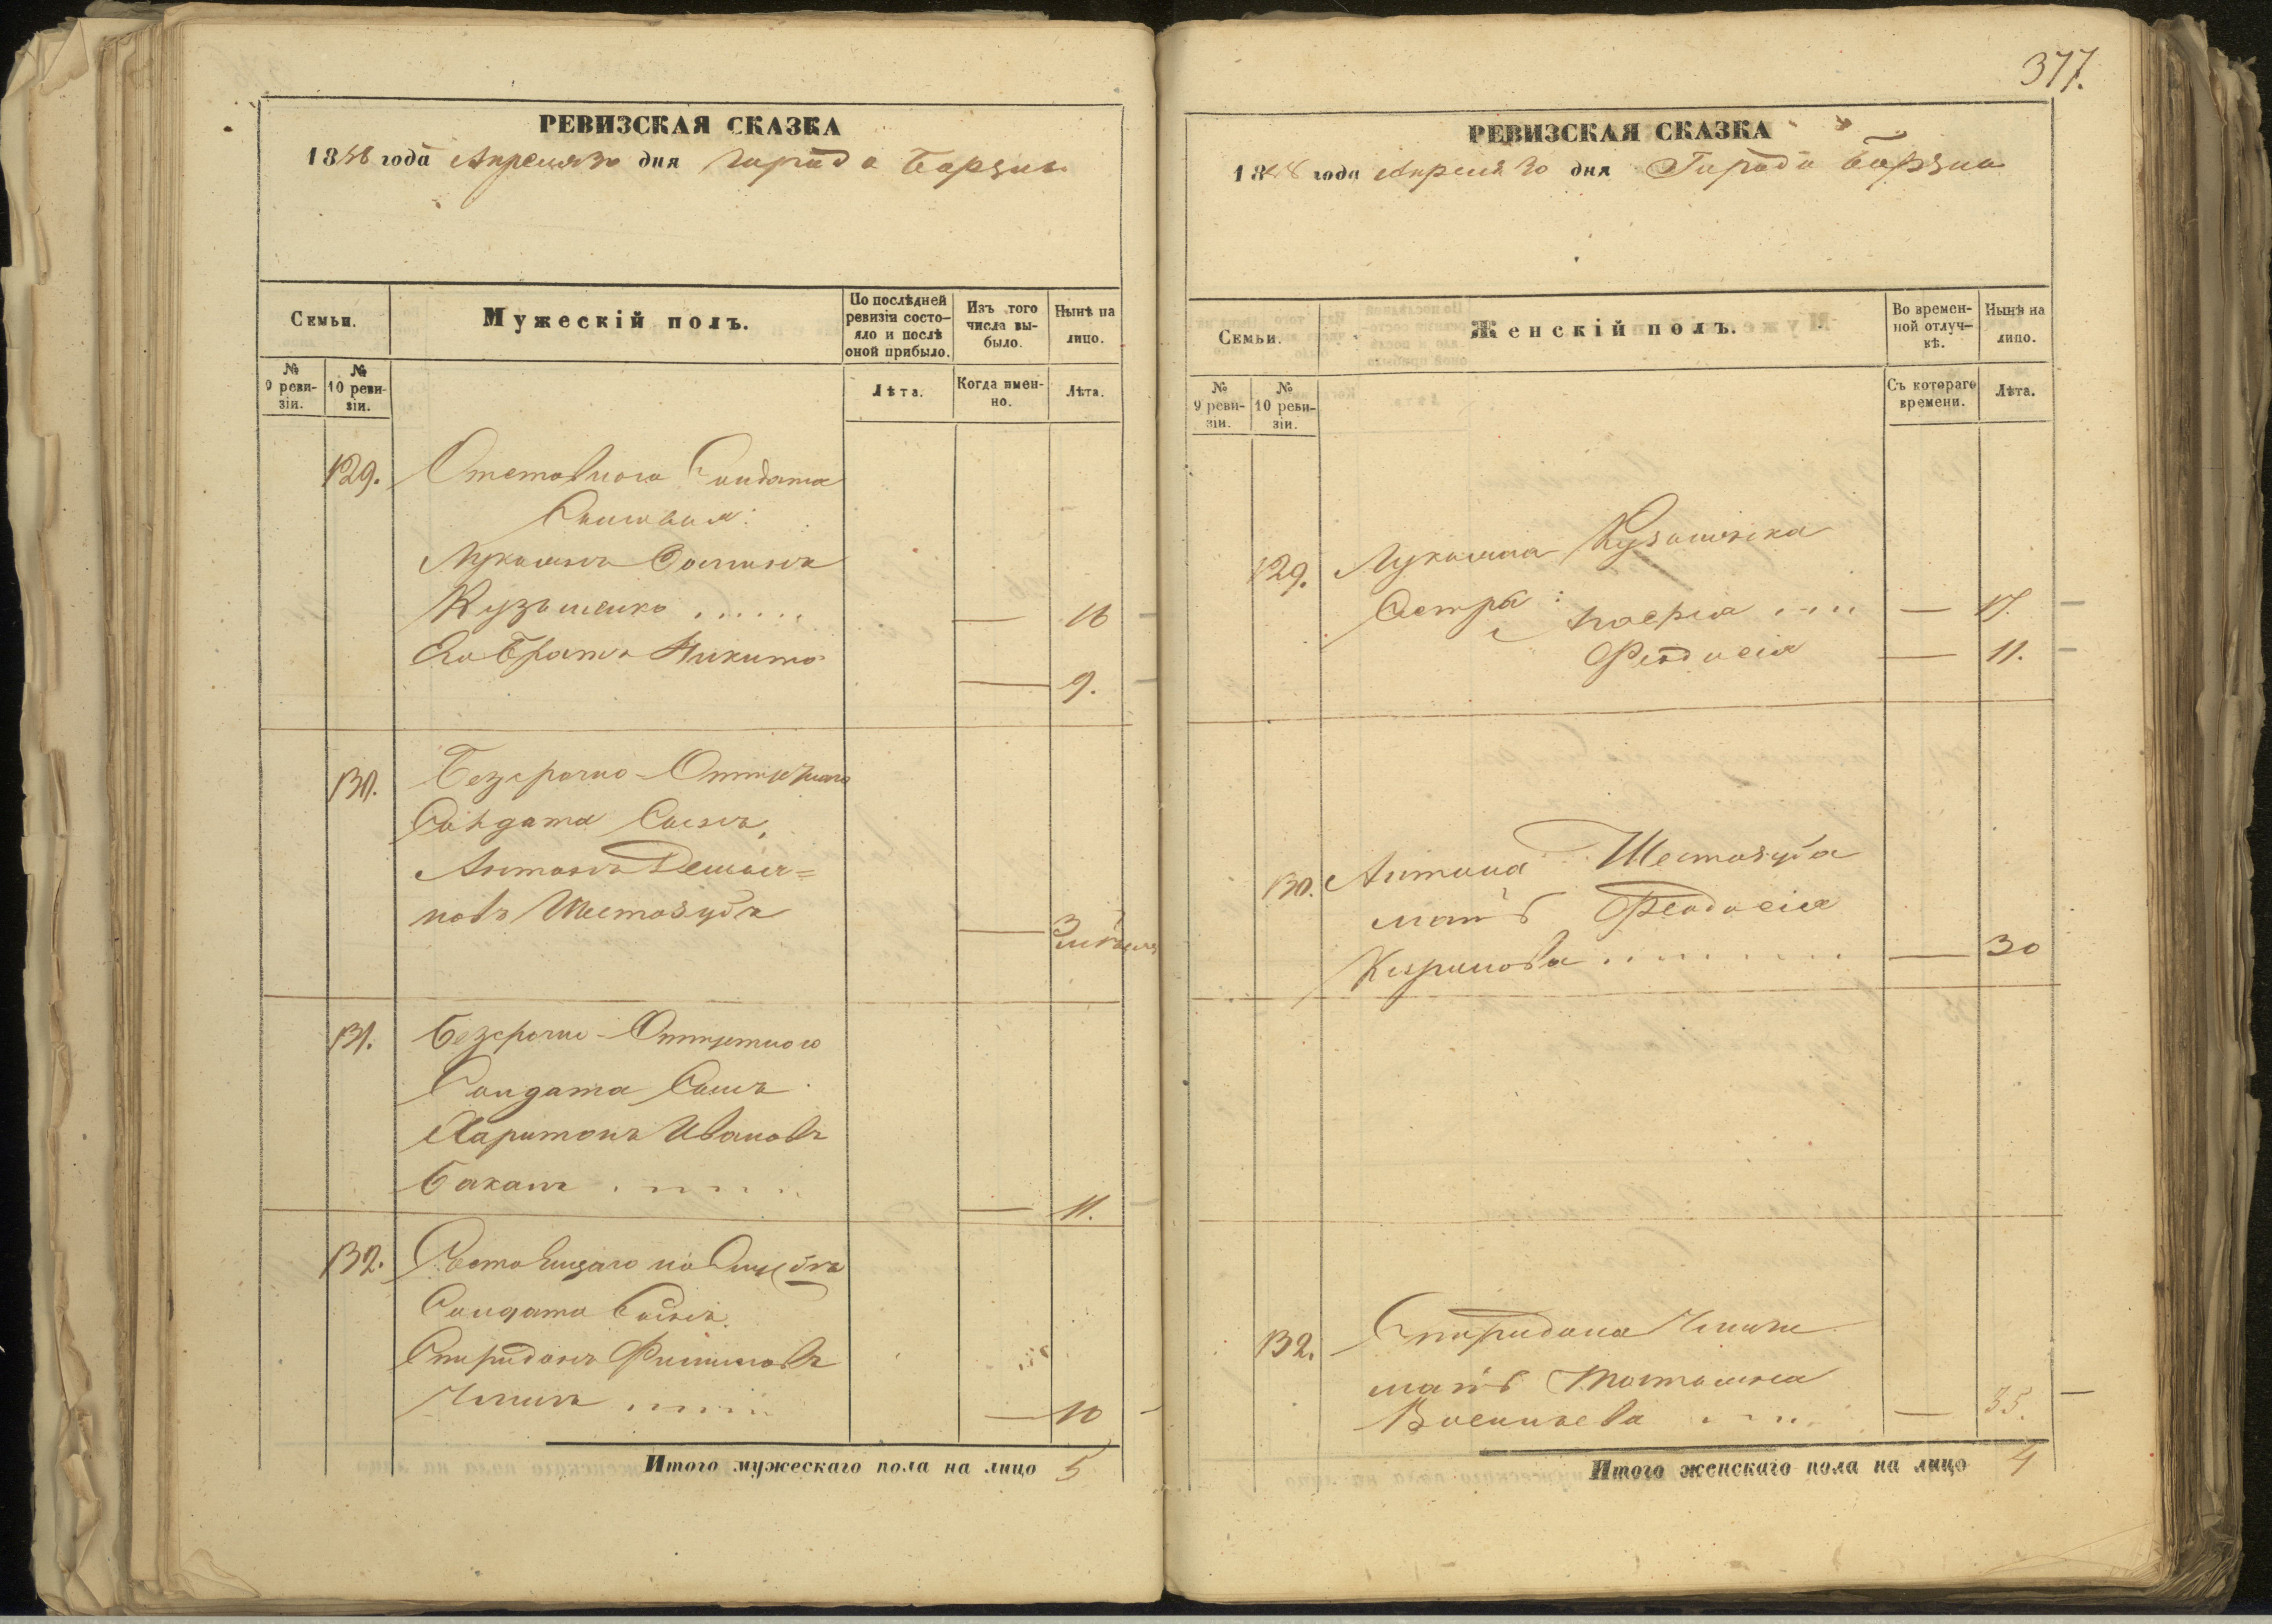 РЕВИЗСКАЯ СКАЗКА
1858 года Апреля 30 дня города Борзны
Семьи.
Мужескій полъ.
По послѣдней ревизіи состояло и послѣ оной прибыло.
Изъ того числа выбыло.
Нынѣ на лицо.
№ 9 ревизіи.
№ 10 ревизіи.
Лѣта.
Когда именно.
Лѣта.
129. Отставного Солдата
Сыновья:
Лукьянъ
Кузьменко ...... — 16
Его Братъ Никита
— 9.
130. Безсрочно-Отпускного
Солдата Сынъ,
Антонъ Демья=
новъ Шестозубъ
— 3
131. Безсрочно-Отпускного
Солдата Сынъ
Харитонъ Ивановъ
Баканъ ...... — 11.
132. Состоящаго на Службѣ
Солдата Сынъ.
Спиридонъ Филиповъ
...... — 10
Итого мужескаго пола на лицо 5
377.
РЕВИЗСКАЯ СКАЗКА
1858 года Апреля 30 дня Города Борзны
Семьи.
Женскій полъ.
Во временной отлучкѣ.
Нынѣ на лицо.
№ 9 ревизіи.
№ 10 ревизіи.
Съ котораго времени.
Лѣта.
129. Лукьяна Кузьменка
Сестры: .... — 17.
Феодосія — 11.
130. Антона Шестозуба
мать Феодосія
Кирилова ......... — 30
132. Спиридона
мать Татьяна
Васильева ..... — 35.
Итого женскаго пола на лицо 4